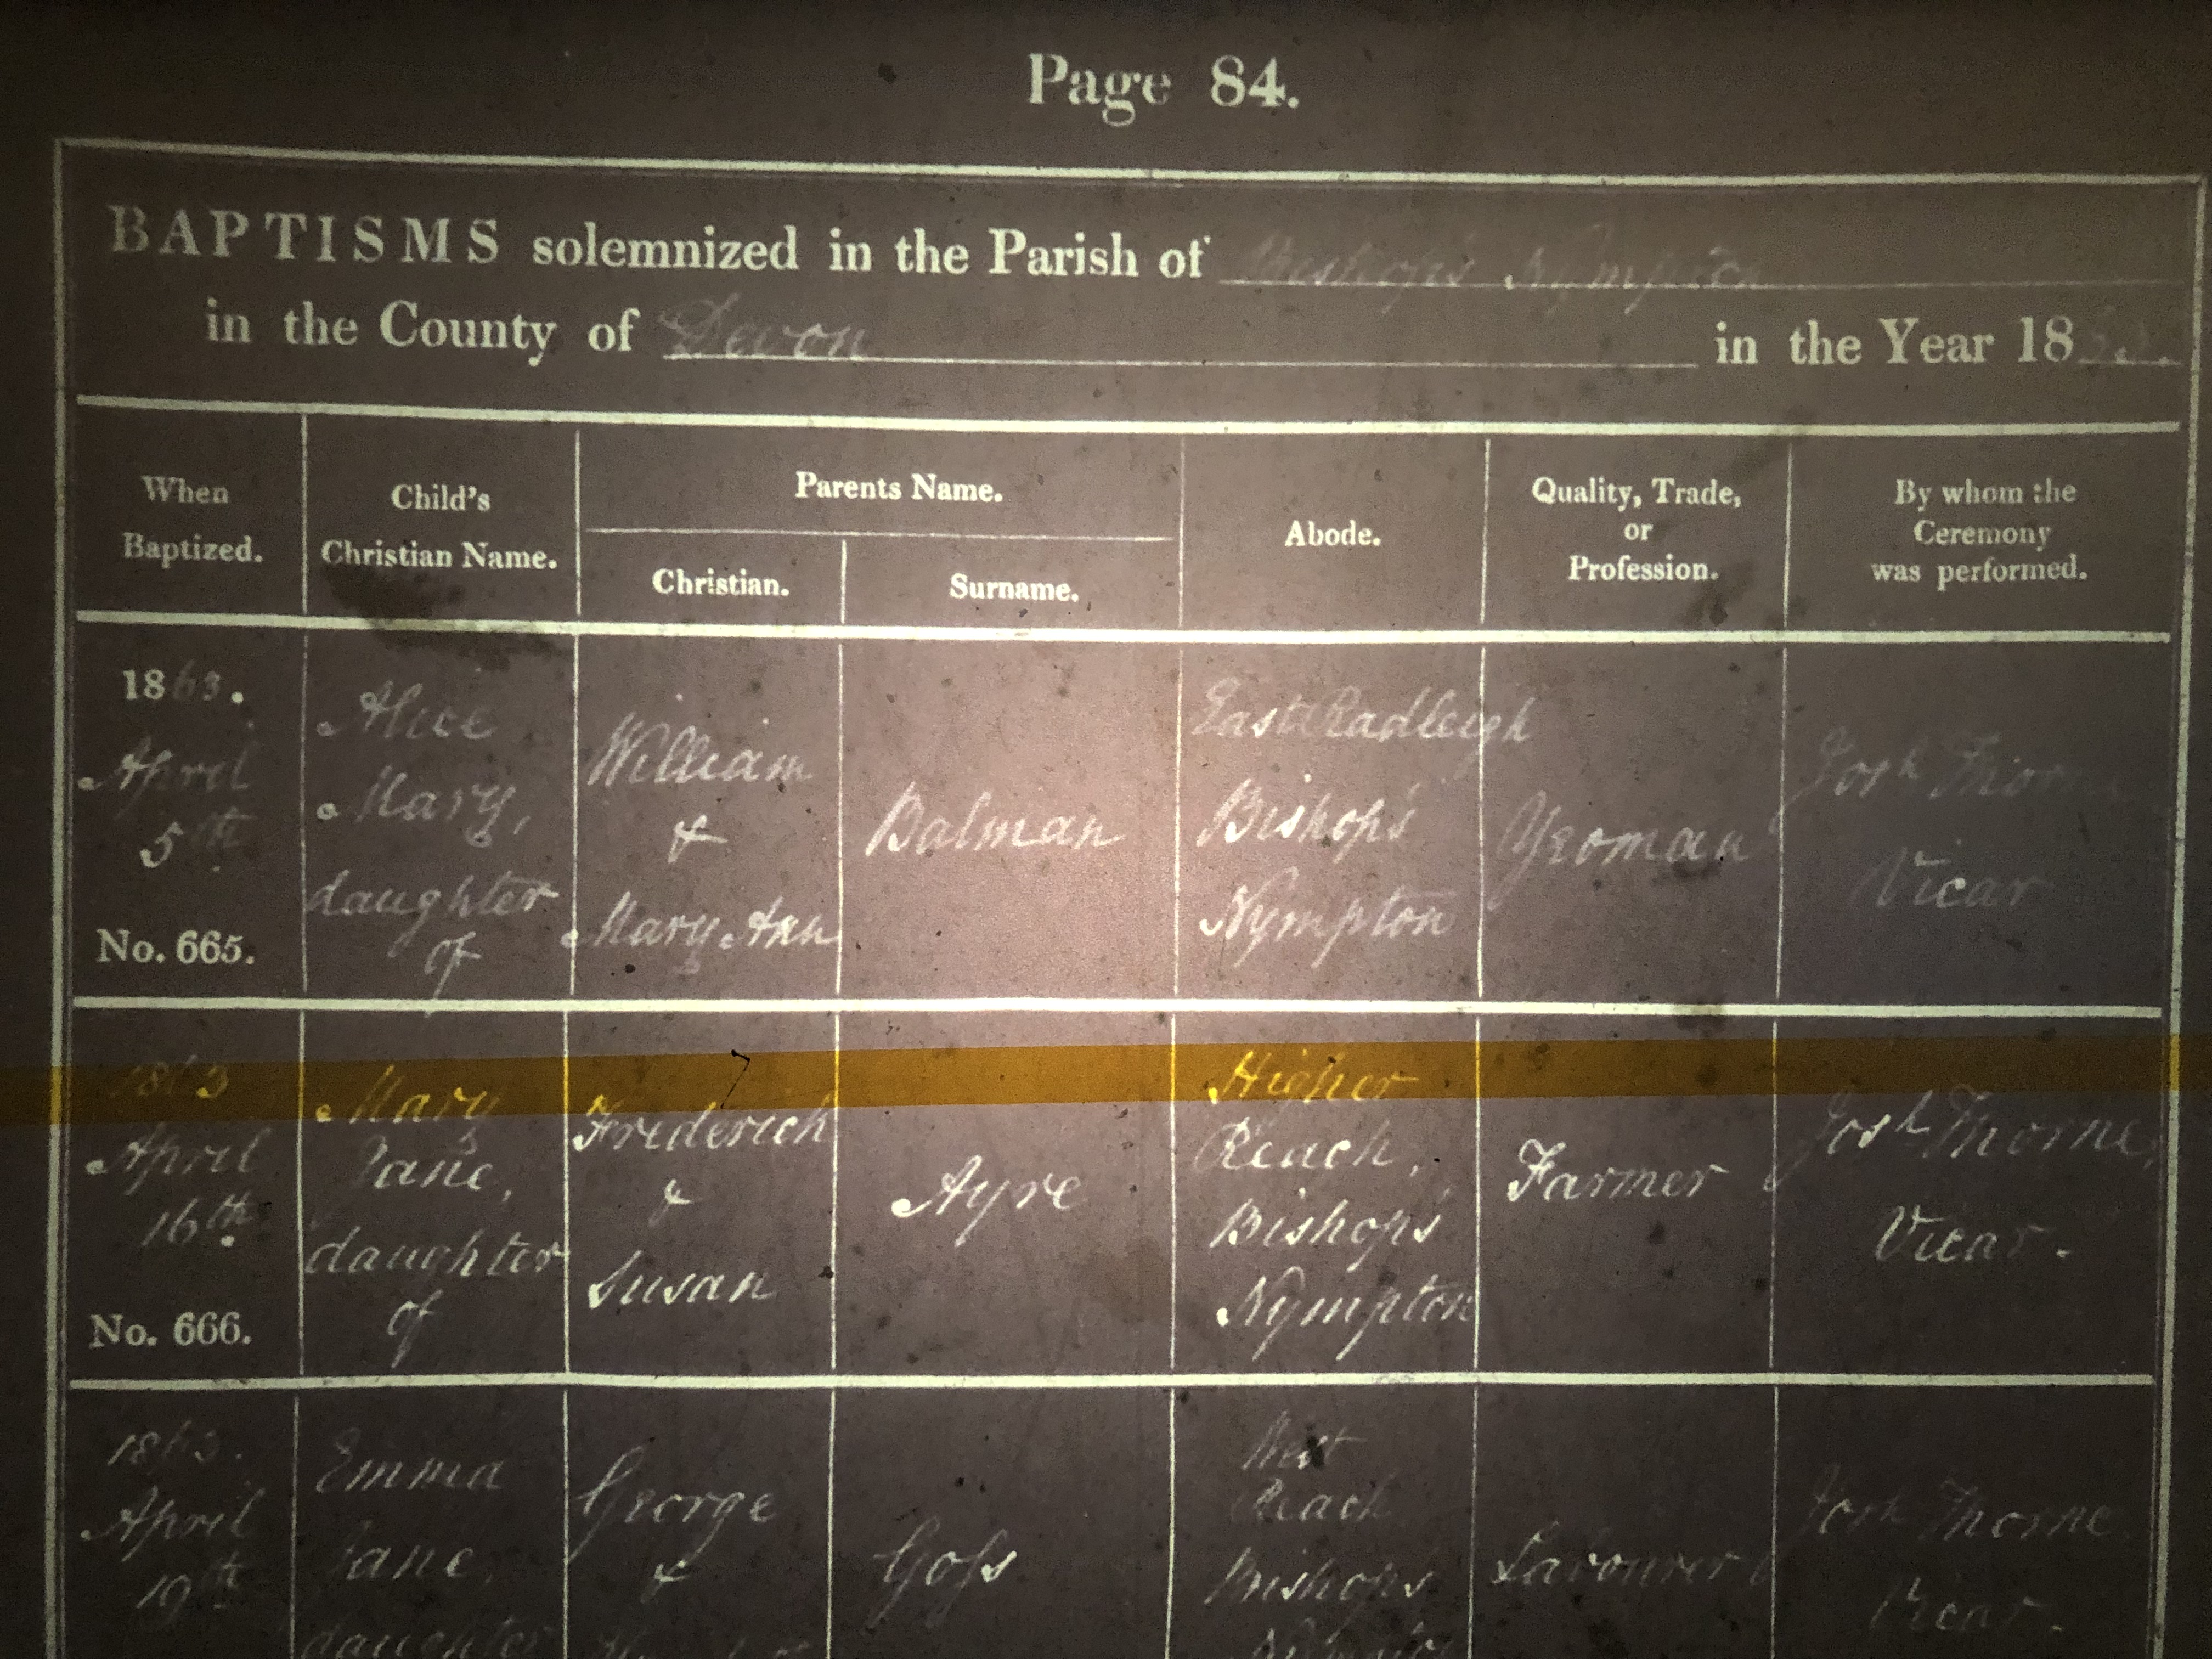 Page 84.
BAPTISMS solemnized in the Parish of Bishop's Nympton
in the County of Devon in the Year 1863.
When Baptized.
Child's Christian Name.
Parents Name.
Christian.
Surname.
Abode.
Quality, Trade, or Profession.
By whom the Ceremony was performed.
1863.
April
5th
No. 665.
Alice
Mary,
daughter
of
William
&
Mary Ann
Balman
East Radleigh
Bishop's
Nympton
Yeoman
Josh Thorne
Vicar
1863
April
16th.
No. 666.
Mary
Jane,
daughter
of
Frederick
&
Susan
Ayre
Higher
Reach,
Bishop's
Nympton
Farmer
Josh Thorne,
Vicar.
1863.
April
19th
Emma
Jane,
daughter
George
&
Goss
West
Reach
Bishop's
Nympton
Labourer
Josh Thorne
Vicar.